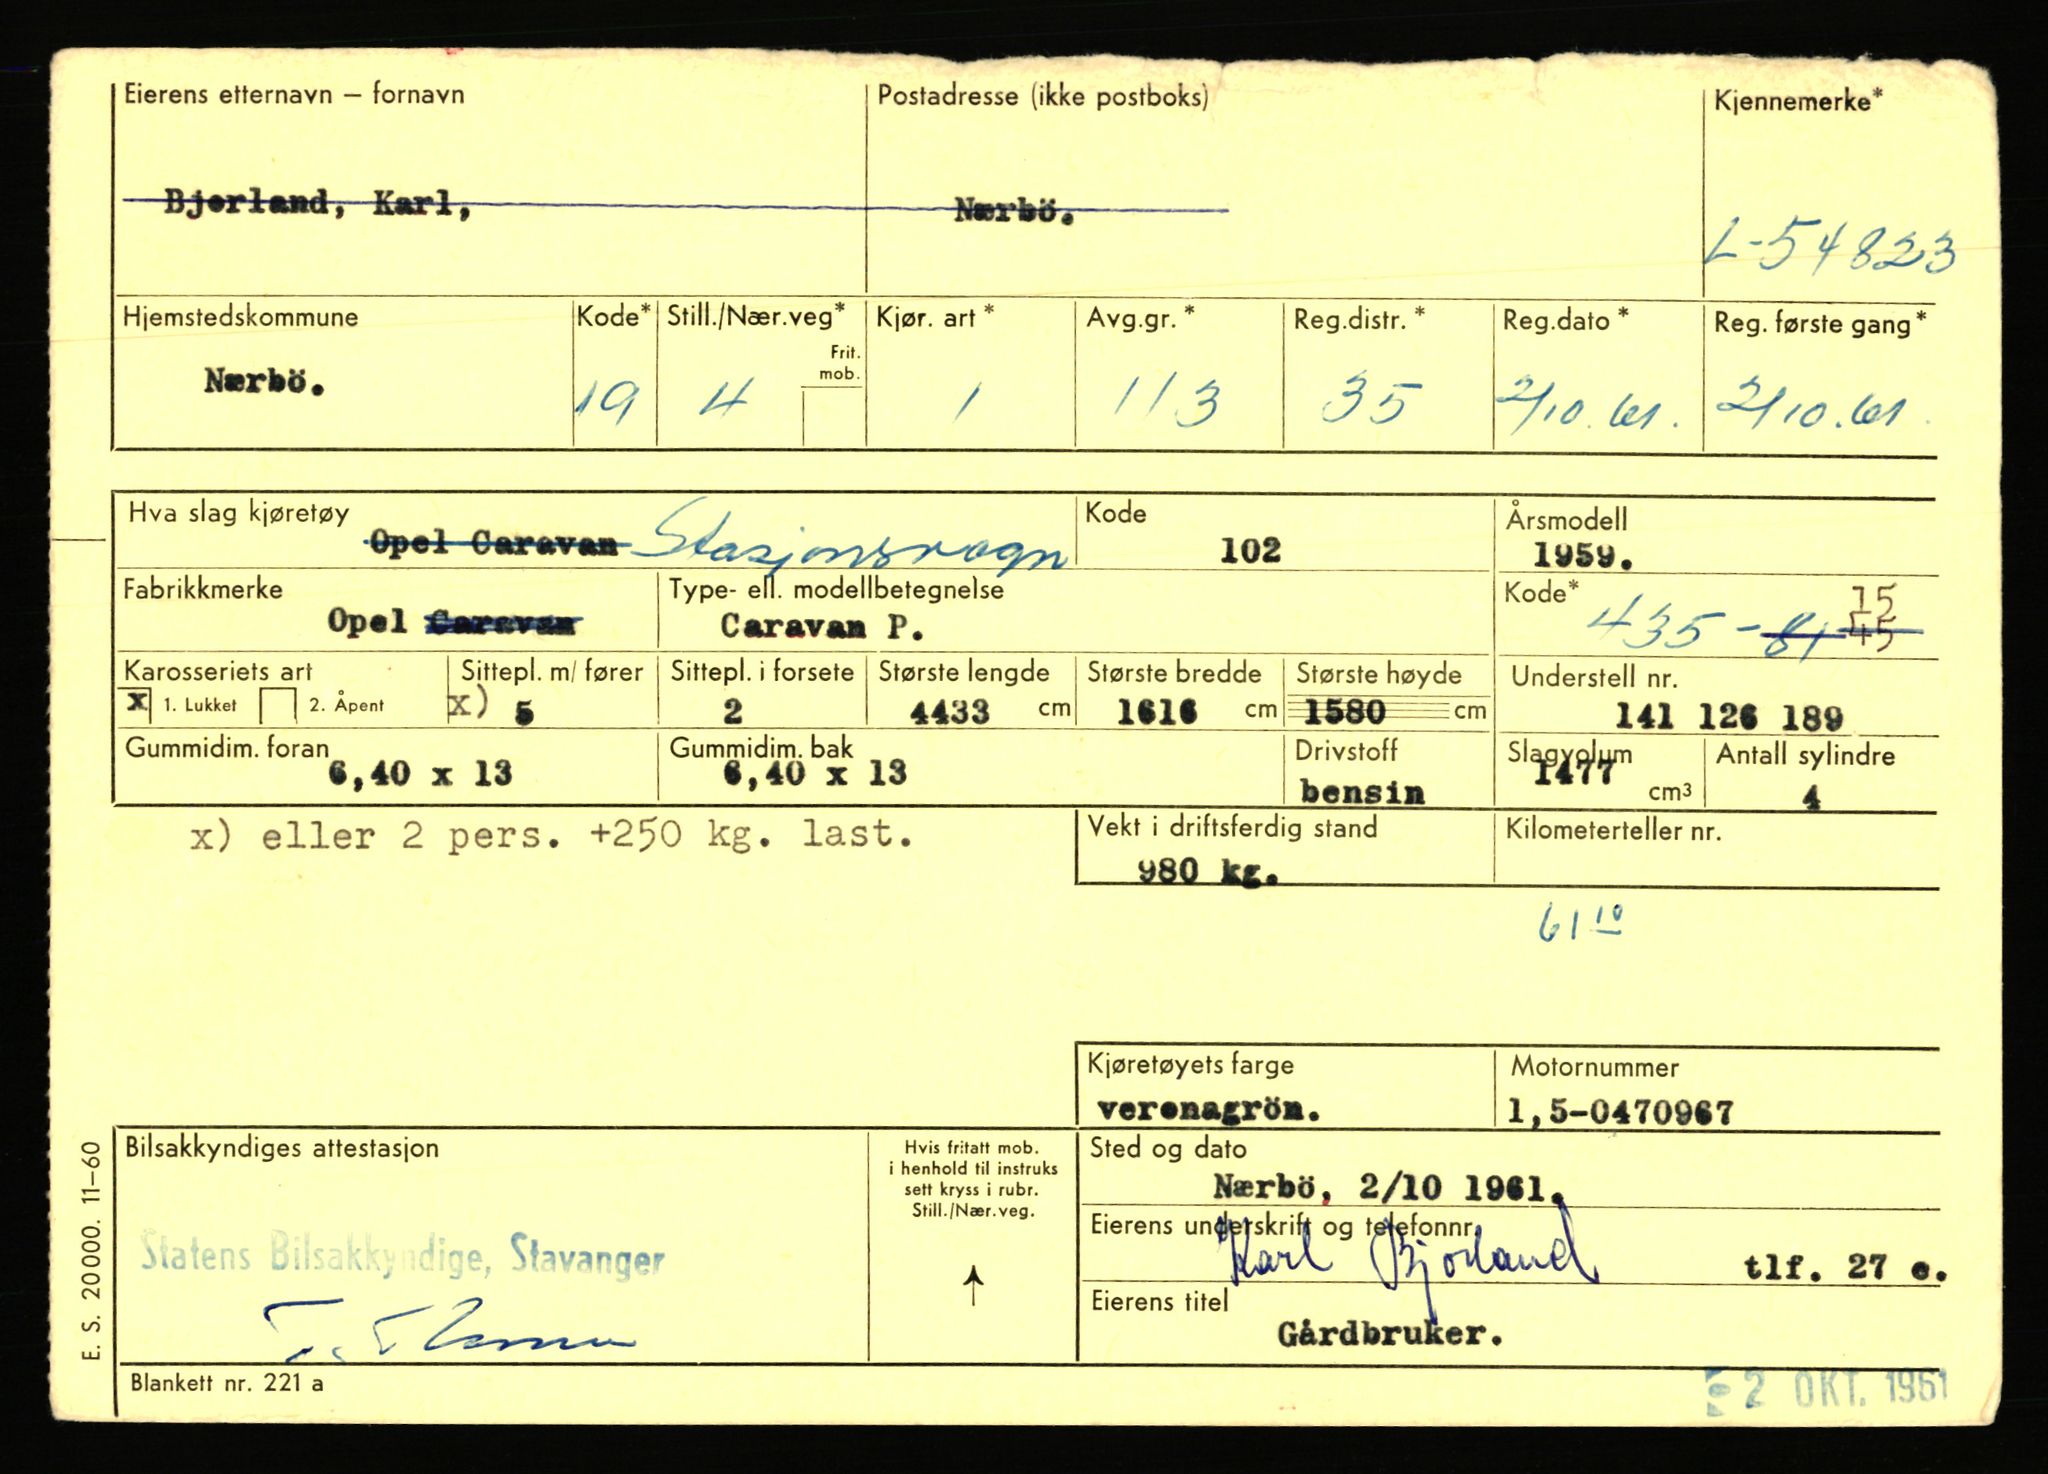 Eierens etternavn – fornavn Postadresse (ikke postboks) Kjennemerke*
Bjorland, Karl, Nærbö.
L-54823
Hjemstedskommune Kode* Still./Nær.veg* Kjør. art * Avg.gr. * Reg.distr. * Reg.dato * Reg. første gang*
Frit.
mob.
Nærbö. 19 4 1 113 35 2/10.61. 2/10.61.
Hva slag kjøretøy Kode Årsmodell
Opel Caravan Stasjonsvogn 102 1959.
Fabrikkmerke Type- ell. modellbetegnelse Kode*
15
Opel Caravan Caravan P. 435-81 45
Karosseriets art Sittepl. m/ fører Sittepl. i forsete Største lengde Største bredde Største høyde Understell nr.
x 1. Lukket 2. Åpent x) 5 2 4433 cm 1616 cm 1580 cm 141 126 189
Gummidim. foran Gummidim. bak Drivstoff Slagvolum Antall sylindre
6,40 x 13 6,40 x 13 bensin 1477 cm³ 4
x) eller 2 pers. +250 kg. last.
Vekt i driftsferdig stand Kilometerteller nr.
980 kg.
61 10
Kjøretøyets farge Motornummer
veronagrön. 1,5-0470967
Bilsakkyndiges attestasjon
Hvis fritatt mob.
i henhold til instruks
sett kryss i rubr.
Still./Nær.veg.
Sted og dato
Nærbö, 2/10 1961.
Eierens underskrift og telefonnr.
Karl Bjorland tlf. 27 e.
Statens Bilsakkyndige, Stavanger
Eierens titel
Gårdbruker.
E. S. 20000. 11–60
Blankett nr. 221 a
2 OKT. 1961